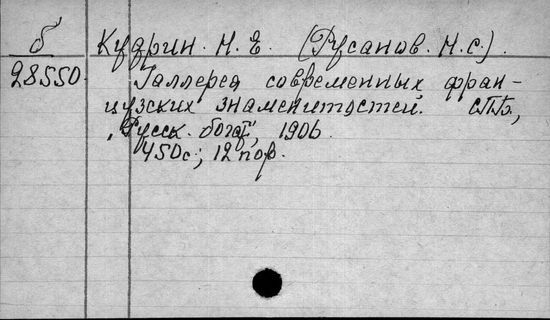 б Кудрин. Н. Е. (Русанов. Н. С.).
28550. Галлерея современных фран-
цузских знаменитостей. СПБ.,
„Русск. богат.", 1906.
450 с.; 12 пор.